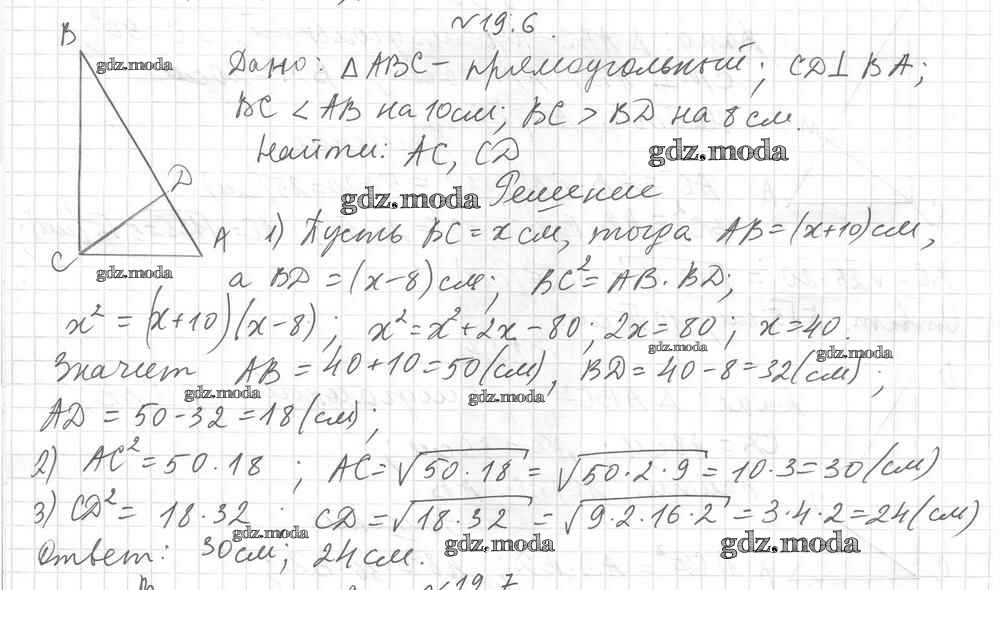 №19.6.
B
gdz.moda
Дано: △ABC - прямоугольный; CD⊥BA;
BC < AB на 10см; BC > BD на 8 см.
Найти: AC, CD
gdz.moda
D
gdz.moda
Решение
A
C
gdz.moda
1) Пусть BC = x см, тогда AB = (x+10) см,
а BD = (x-8) см; BC² = AB · BD;
x² = (x+10)(x-8); x² = x² + 2x - 80; 2x = 80; x = 40.
gdz.moda
gdz.moda
Значит AB = 40 + 10 = 50 (см), BD = 40 - 8 = 32 (см);
gdz.moda
gdz.moda
AD = 50 - 32 = 18 (см);
2) AC² = 50 · 18; AC = √50 · 18 = √50 · 2 · 9 = 10 · 3 = 30 (см)
3) CD² = 18 · 32; CD = √18 · 32 = √9 · 2 · 16 · 2 = 3 · 4 · 2 = 24 (см)
gdz.moda
gdz.moda
gdz.moda
Ответ: 30 см; 24 см.
№19.7